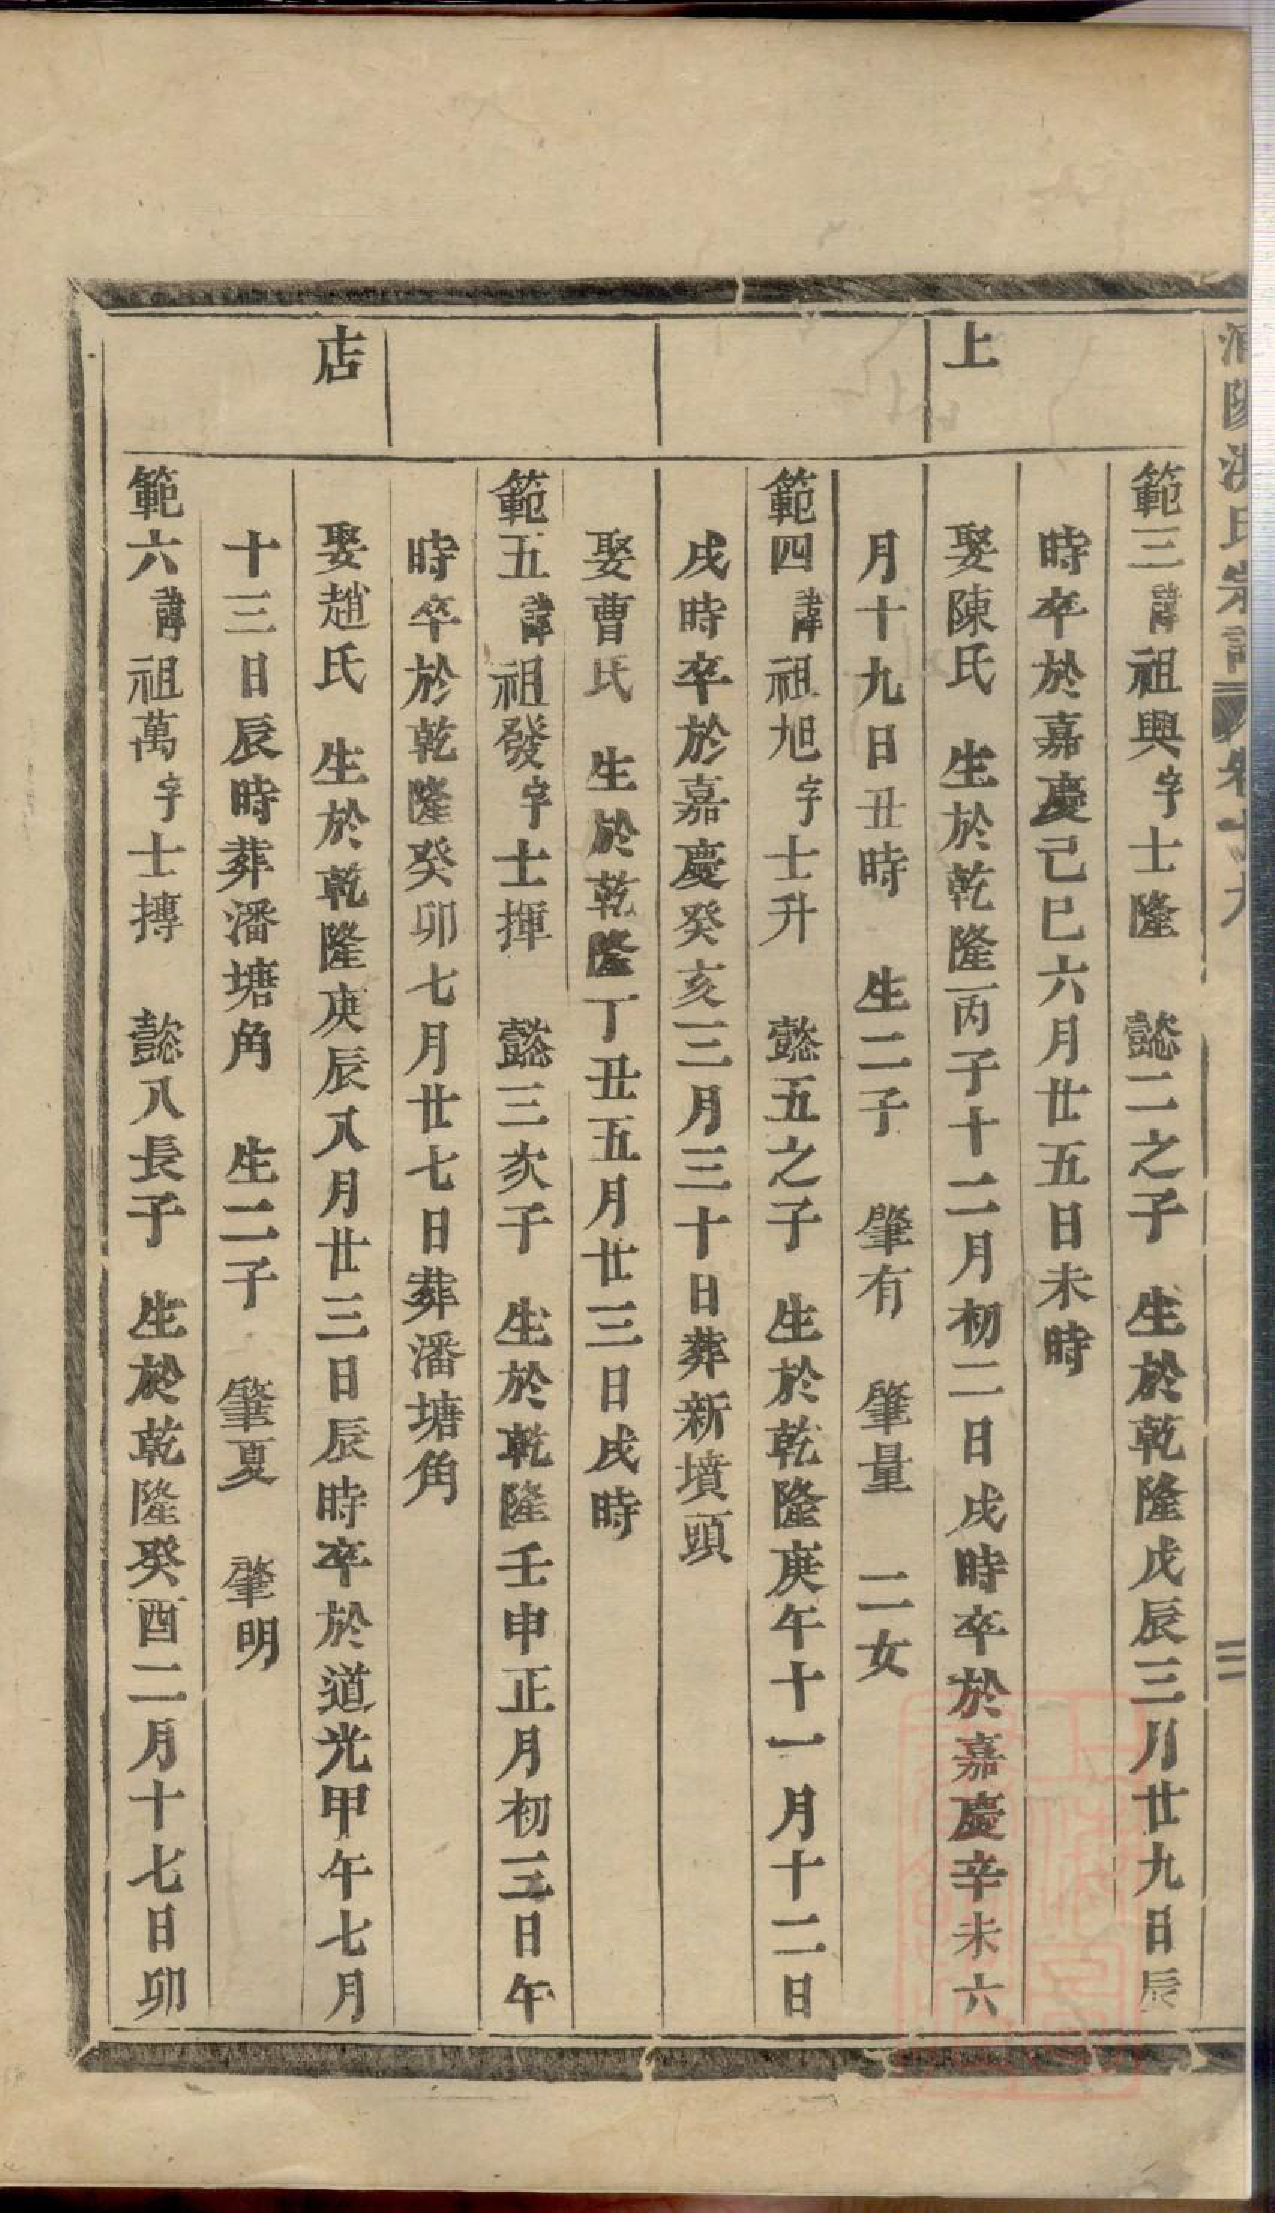 陽洪氏宗譜 卷十九
三
上
店
範三諱祖興字士隆 懿二之子 生於乾隆戊辰三月廿九日辰
時卒於嘉慶己巳六月廿五日未時
娶陳氏 生於乾隆丙子十二月初二日戌時卒於嘉慶辛未六
月十九日丑時 生二子 肇有 肇量 二女
範四諱祖旭字士升 懿五之子 生於乾隆庚午十一月十二日
戌時卒於嘉慶癸亥三月三十日葬新墳頭
娶曹氏 生於乾隆丁丑五月廿三日戌時
範五諱祖發字士揮 懿三次子 生於乾隆壬申正月初三日午
時卒於乾隆癸卯七月廿七日葬潘塘角
娶趙氏 生於乾隆庚辰八月廿三日辰時卒於道光甲午七月
十三日辰時葬潘塘角 生二子 肇夏 肇明
範六諱祖萬字士摶 懿八長子 生於乾隆癸酉二月十七日卯